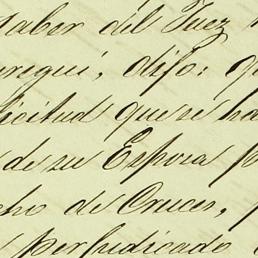 saber del Juez
uregui, dijo: qu
licitud que se ha
de su Esposa p
cho de Cruces,
perjudicado